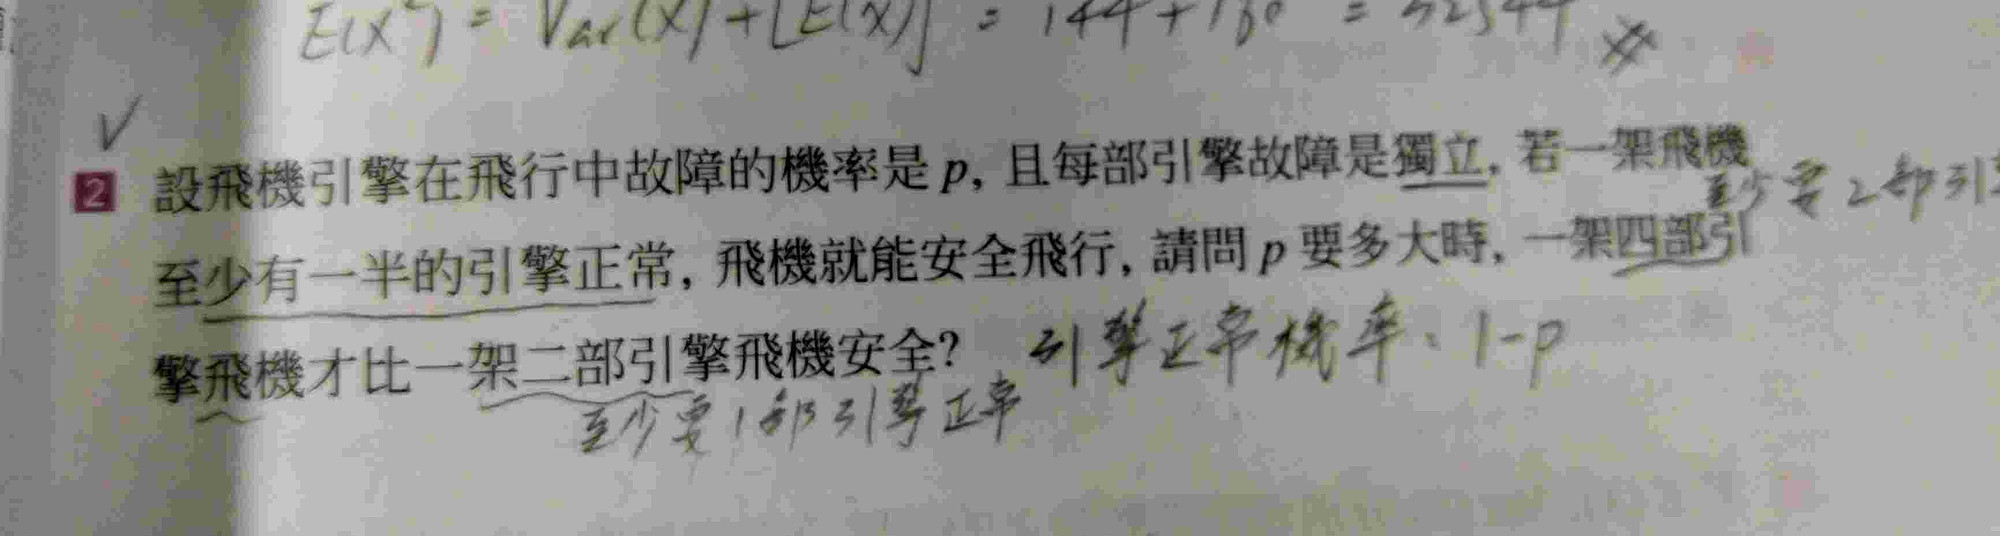 E(X²) = Var(X) + [E(X)]² = 144 + 180² = 32544
2 設飛機引擎在飛行中故障的機率是 p, 且每部引擎故障是獨立, 若一架飛機
至少要2部引
至少有一半的引擎正常, 飛機就能安全飛行, 請問 p 要多大時, 一架四部引
擎飛機才比一架二部引擎飛機安全? 引擎正常機率: 1-p
至少要1部引擎正常